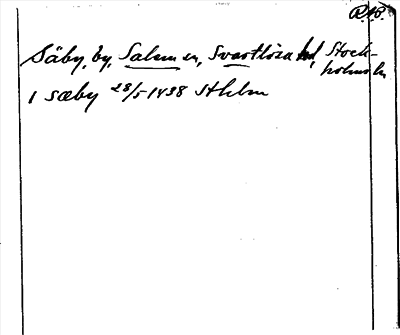 RAB.
Säby, by, Salem sn, Svartlösa hd, Stock-
holms ln
i sæby 28/5 1438 Sthlm